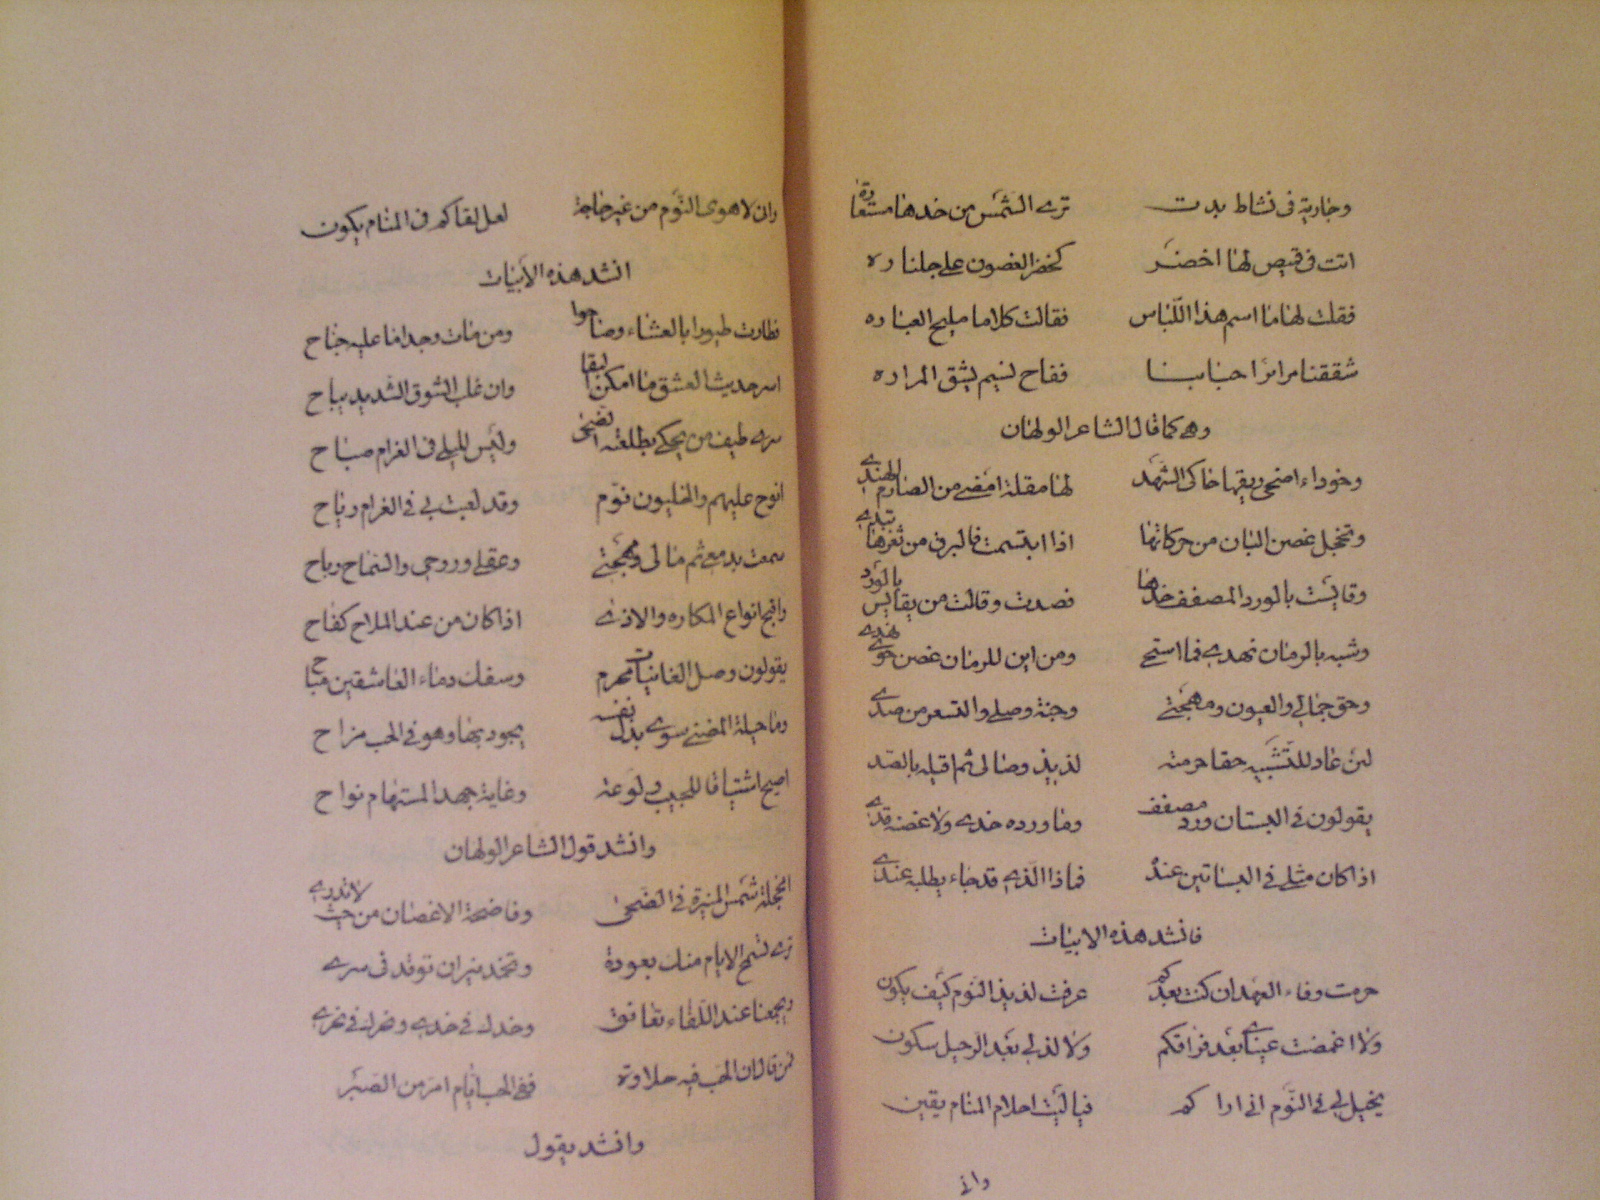 وجارية في نشاط بدت ترى الشمس من خدها مستعارة
اتت في قميص لها اخضر كخضر الغصون على جلناره
فقلت لها ما اسم هذا اللباس فقالت كلاما مليح العباره
شققنا مرائر احبابنا ففاح نسيم يشق المراره
وهي كما قال الشاعر الولهان
وخوداء اضحى ريقها حاكى الشهد لها مقلة امضى من الصارم الهندي
وتخجل غصن البان من حركاتها اذا ابتسمت فالبرق من ثغرها تبدي
وقايست بالورد المصفف خدها فصدت وقالت من يقايس بالورد
وشبه بالرمان نهدي فما استحى ومن اين للرمان غصن حوى نهدي
وحق جمالي والعيون ومهجتي وجنة وصلي والتسعر من صدي
لئن عاد للتشبيه حقا حرمته لذيذ وصالي ثم اقتله بالصد
يقولون في البستان ورد مصفف وما ورده خدي ولا غصنه قدي
اذا كان مثلي في البساتين عنده فماذا الذي قد جاء يطلبه عندي
فانشد هذه الابيات
حرمت وفاء العهد ان كنت بعدكم عرفت لذيذ النوم كيف يكون
ولا اغمضت عيناي بعد فراقكم ولا لذ لي بعد الرحيل سكون
يخيل لي في النوم اني اراكم فيا ليت احلام المنام يقين
واني
واني لاهوى النوم من غير حاجة لعل لقاكم في المنام يكون
انشد هذه الابيات
فطارت طيورا بالعشاء وصاحوا ومن مات وجدا ما عليه جناح
اسر حديث العشق ما امكن البقا وان غلب الشوق الشديد يباح
سرى طيف من يحكى بطلعته الضحى وليس لليلى في الغرام صباح
انوح عليهم والخليون نوم وقد لعبت بي في الغرام رياح
سمعت بدمعي ثم مالي ومهجتي وعقلي وروحي والسماح رباح
واقبح انواع المكاره والاذى اذا كان من عند الملاح كفاح
يقولون وصل الغانيات محرم وسفك دماء العاشقين مباح
وما حيلة المضنى سوى بذل نفسه يجود بها وهو في الحب مزاح
اصيح اشتياقا للحبيب ولوعة وغاية جهد المستهام نواح
وانشد قول الشاعر الولهان
امخجلة شمس المنيرة في الضحى وفاضحة الاغصان من حيث لا تدري
ترى تسمح الايام منك بعودة وتخمد نيران توقد في سري
ويجمعنا عند اللقاء تعانق وخدك في خدي ونحرك في نحري
فمن قال ان الحب فيه حلاوة ففي الحب ايام امر من الصبر
وانشد يقول